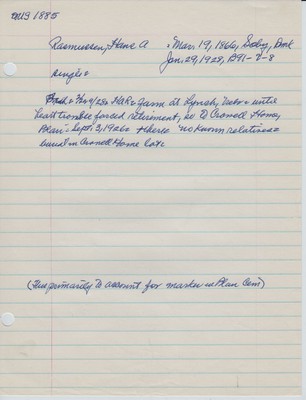 Rasmussen, Hans A * Mar. 19, 1866, Soby, Den
Jan. 29, 1928, B91-8-8
single
farm at Lynch, Nebr until
heart trouble forced retirement, so to Crowell Home,
Blair Sept. 3, 1926 there no known relatives
burial in Crowell Home lot
(This primarily to account for marker in Blair Cem)